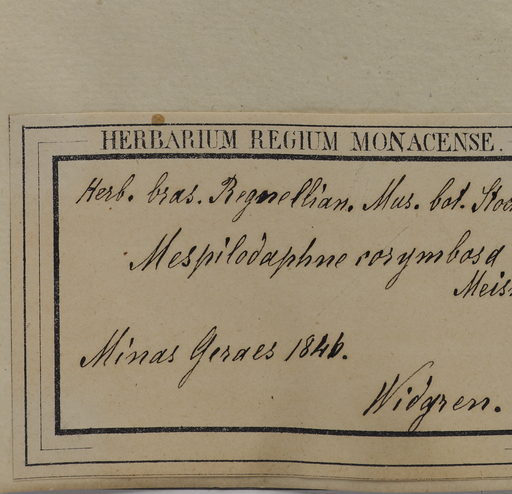 HERBARIUM REGIUM MONACENSE.
Herb. bras. Regnellian. Mus. bot. Stoc
Mespilodaphne corymbosa
Meis
Minas Geraes 1846.
Widgren.